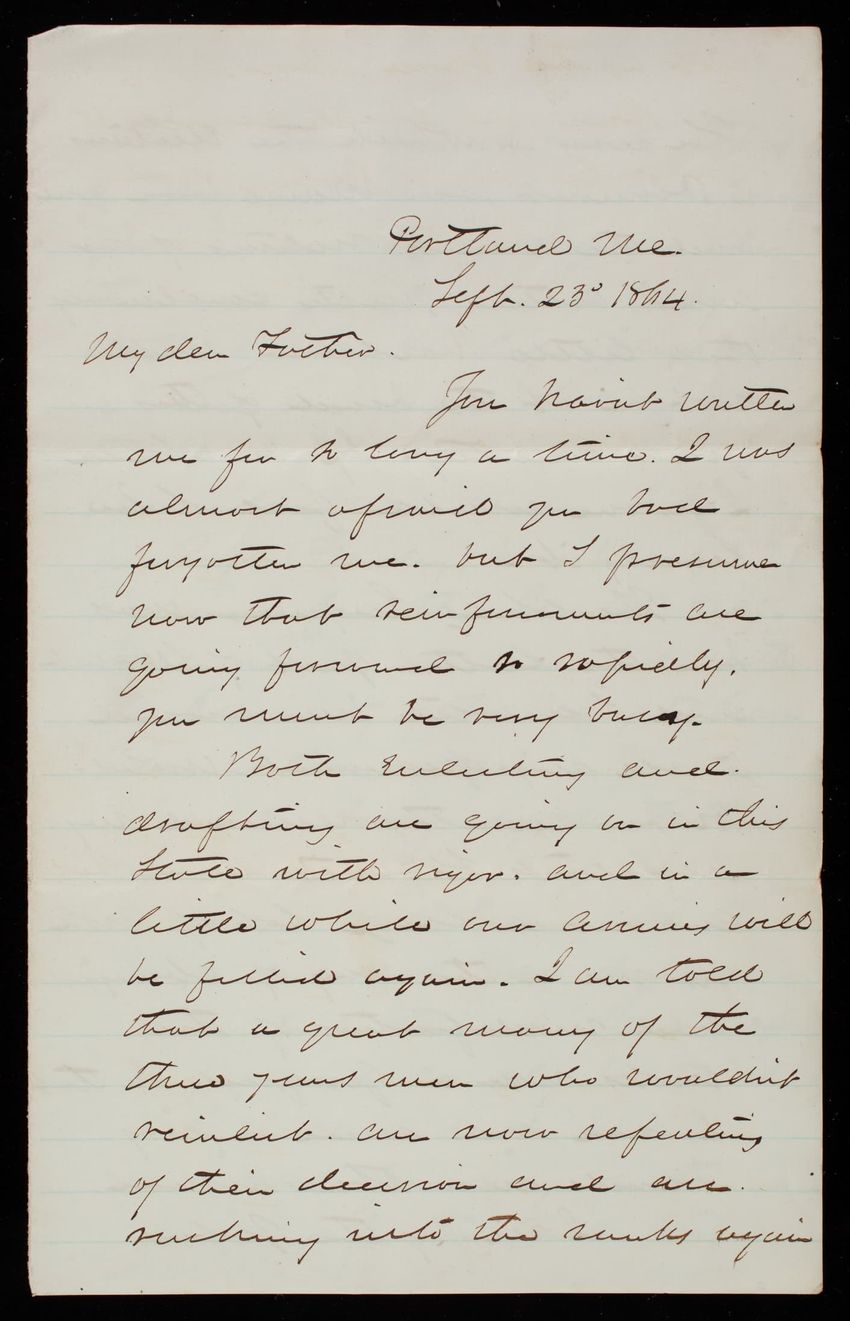 Portland Me.
Sept. 23d 1864.
My dear Father.
You havint written
me for so long a time. I was
almost afraid you had
forgotten me. but I presume
now that reinforcments are
going forward so rapidly.
you must be very busy.
Both Enlisting and
drafting are going on in this
State with vigor. and in a
little while our Armies will
be filled again. I am told
that a great many of the
three years men who wouldnt
reinlist. are now repenting
of their decision and are
rushing into the ranks again